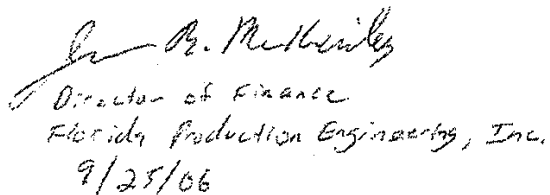 R. McKinley
Director of Finance
Florida Production Engineering, Inc.
9/25/06